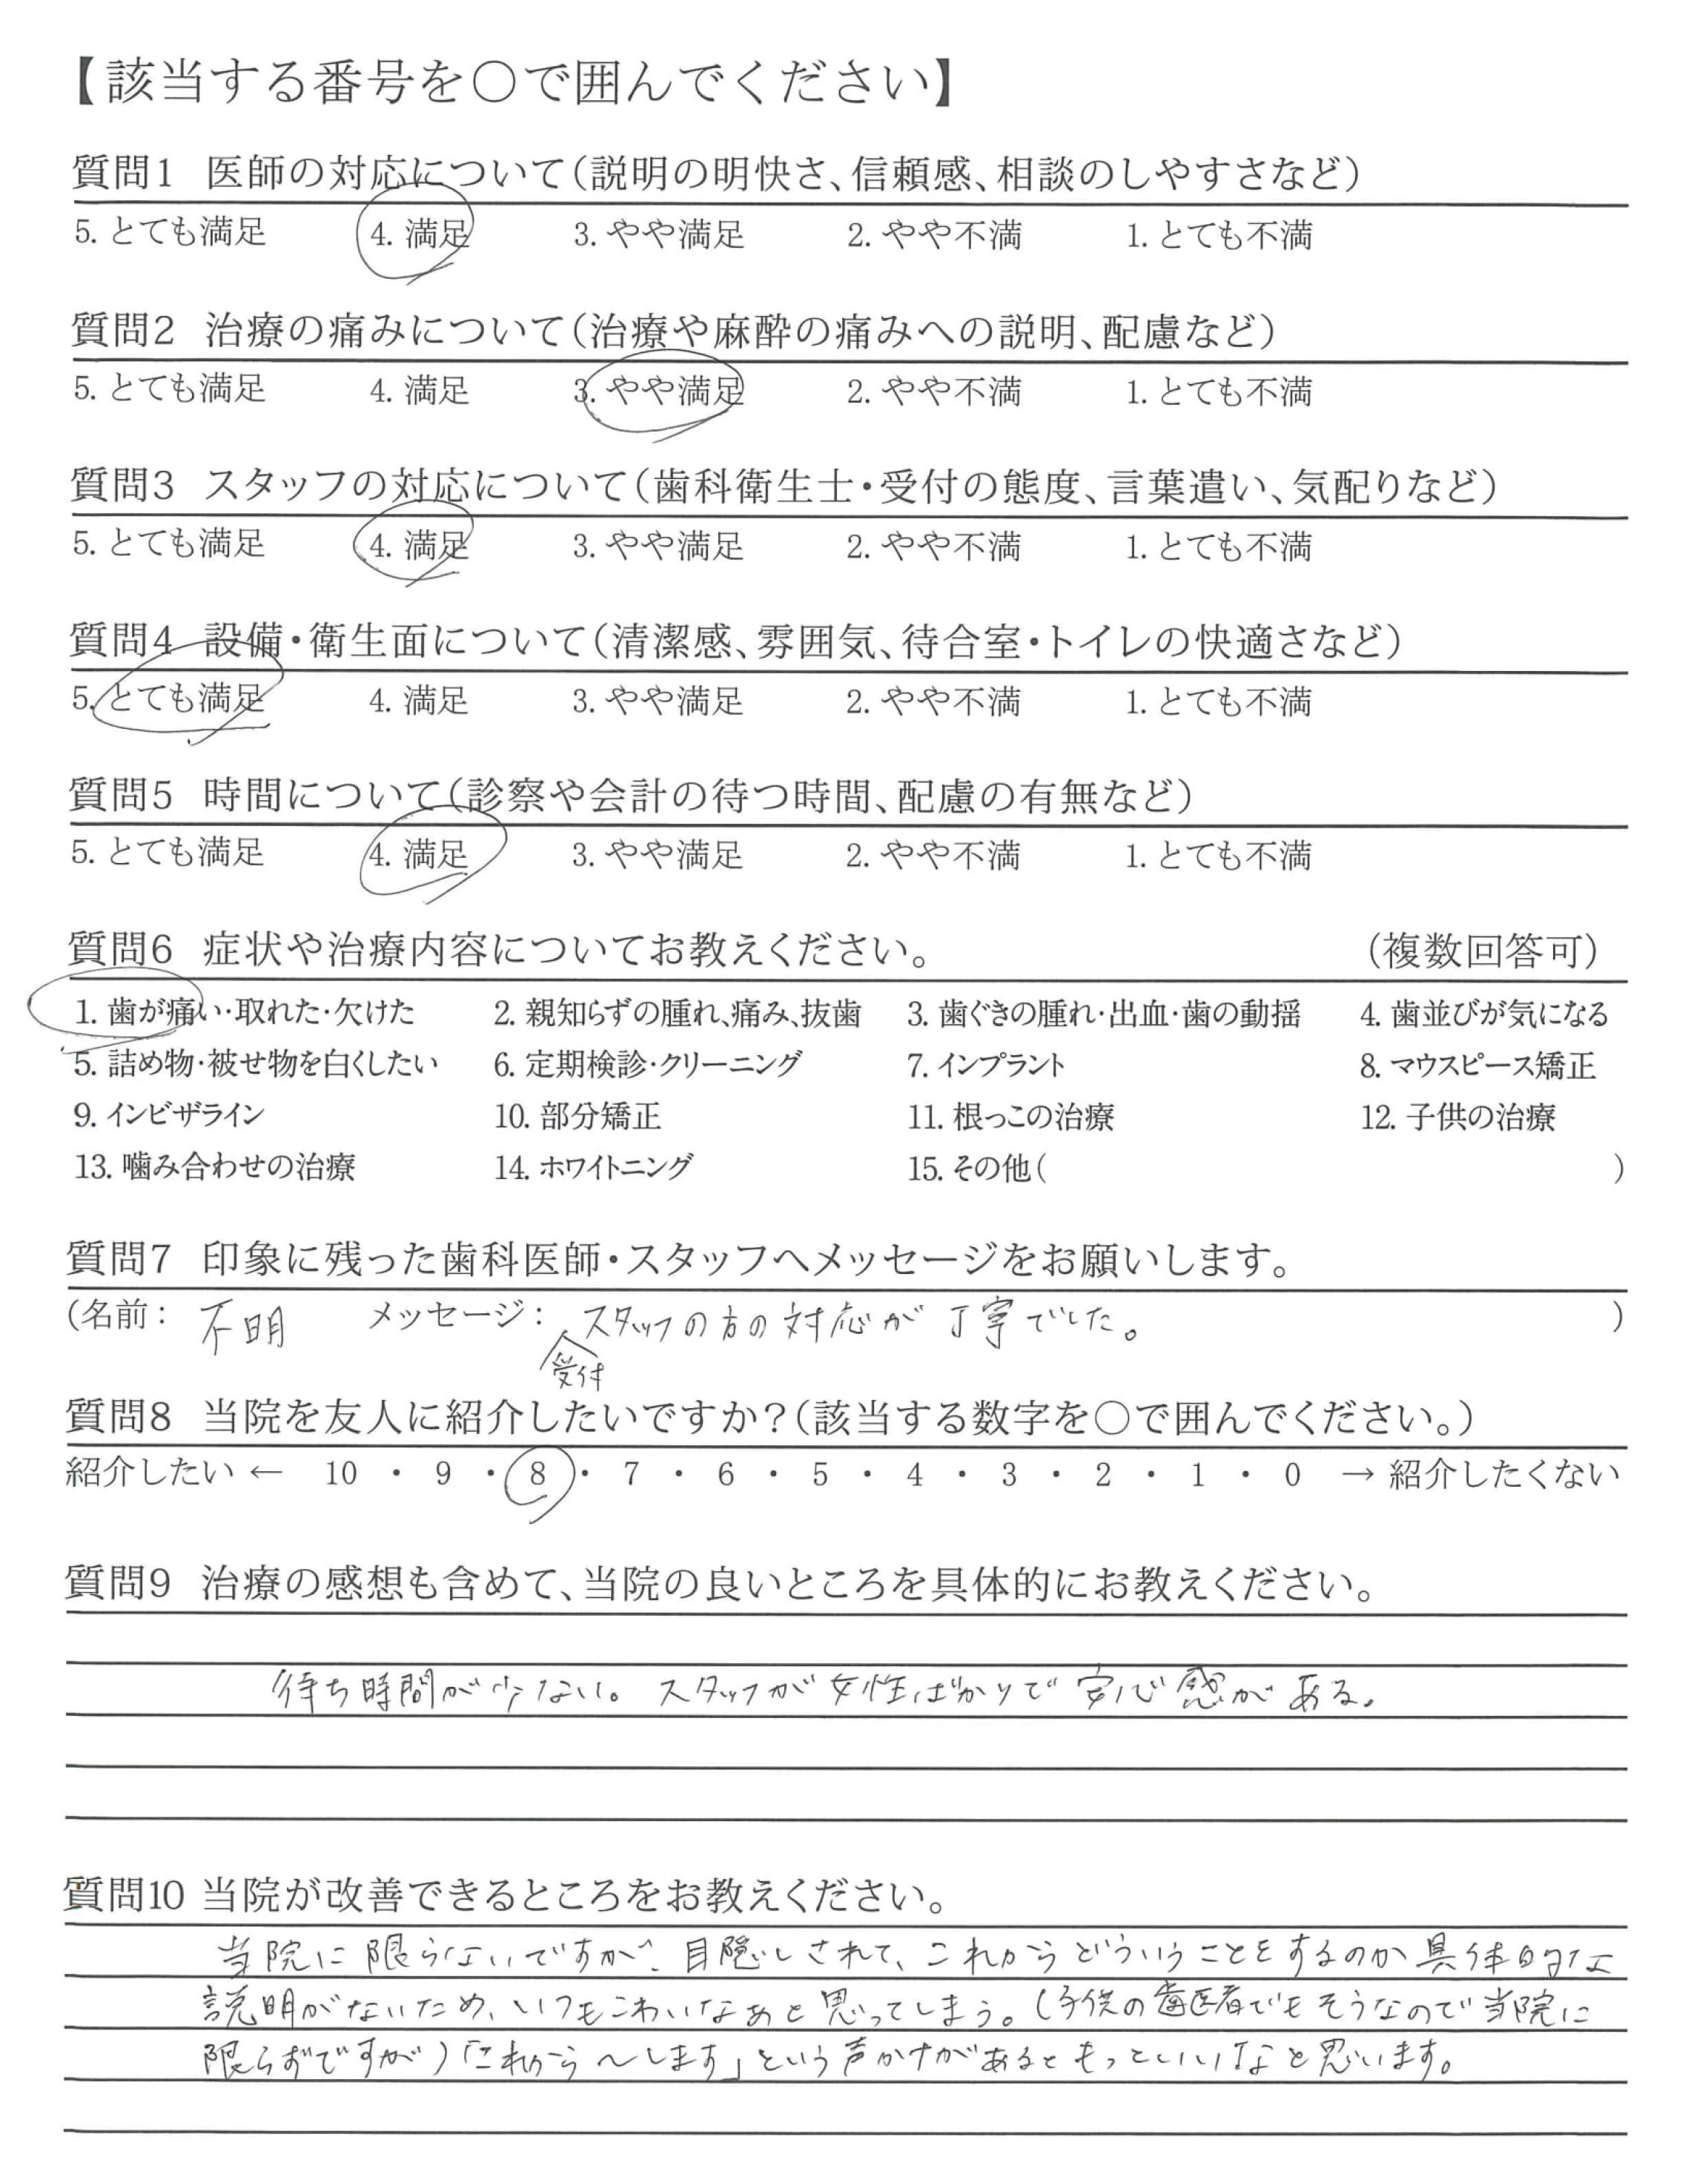 【該当する番号を〇で囲んでください】
質問1 医師の対応について(説明の明快さ、信頼感、相談のしやすさなど)
5. とても満足 4. 満足 3. やや満足 2. やや不満 1. とても不満
質問2 治療の痛みについて(治療や麻酔の痛みへの説明、配慮など)
5. とても満足 4. 満足 3. やや満足 2. やや不満 1. とても不満
質問3 スタッフの対応について(歯科衛生士・受付の態度、言葉遣い、気配りなど)
5. とても満足 4. 満足 3. やや満足 2. やや不満 1. とても不満
質問4 設備・衛生面について(清潔感、雰囲気、待合室・トイレの快適さなど)
5. とても満足 4. 満足 3. やや満足 2. やや不満 1. とても不満
質問5 時間について(診察や会計の待つ時間、配慮の有無など)
5. とても満足 4. 満足 3. やや満足 2. やや不満 1. とても不満
質問6 症状や治療内容についてお教えください。 (複数回答可)
1. 歯が痛い・取れた・欠けた 2. 親知らずの腫れ、痛み、抜歯 3. 歯ぐきの腫れ・出血・歯の動揺 4. 歯並びが気になる
5. 詰め物・被せ物を白くしたい 6. 定期検診・クリーニング 7. インプラント 8. マウスピース矯正
9. インビザライン 10. 部分矯正 11. 根っこの治療 12. 子供の治療
13. 噛み合わせの治療 14. ホワイトニング 15. その他( )
質問7 印象に残った歯科医師・スタッフへメッセージをお願いします。
(名前: 不明 メッセージ: スタッフの方の対応が丁寧でした。 )
受付
質問8 当院を友人に紹介したいですか?(該当する数字を〇で囲んでください。)
紹介したい ← 10 ・ 9 ・ 8 ・ 7 ・ 6 ・ 5 ・ 4 ・ 3 ・ 2 ・ 1 ・ 0 → 紹介したくない
質問9 治療の感想も含めて、当院の良いところを具体的にお教えください。
待ち時間が少ない。スタッフが女性ばかりで安心感がある。
質問10 当院が改善できるところをお教えください。
当院に限らないですが、目隠しされて、これからどういうことをするのか具体的な
説明がないため、いつもこわいなあと思ってしまう。(子供の歯医者でもそうなので当院に
限らずですが)「これから〜します」という声かけがあるともっといいなと思います。